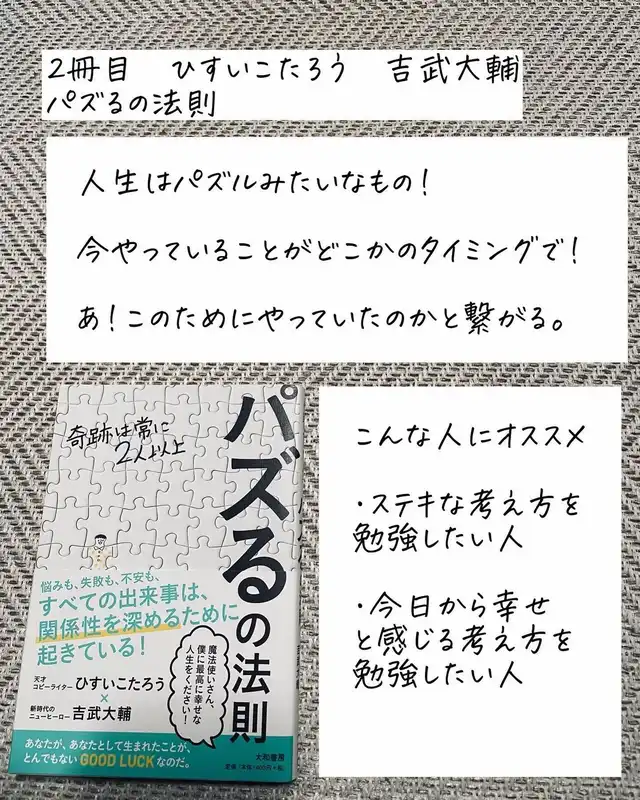 2冊目 ひすいこたろう 吉武大輔
パズるの法則
人生はパズルみたいなもの!
今やっていることがどこかのタイミングで!
あ!このためにやっていたのかと繋がる。
パズるの法則
奇跡は常に
2人以上
悩みも、失敗も、不安も、
すべての出来事は、
関係性を深めるために
起きている!
魔法使いさん、
僕に最高に幸せな
人生をください!
天才
コピーライター ひすいこたろう
×
新時代の
ニューヒーロー 吉武大輔
あなたが、あなたとして生まれたことが、
とんでもないGOOD LUCKなのだ。
大和書房
定価(本体1400円+税)
こんな人にオススメ
・ステキな考え方を
勉強したい人
・今日から幸せ
と感じる考え方を
勉強したい人